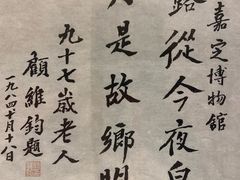 嘉定博物馆
露從今夜白
月是故鄉明
九十七歲老人
顧維鈞題
一九八四年十月十八日